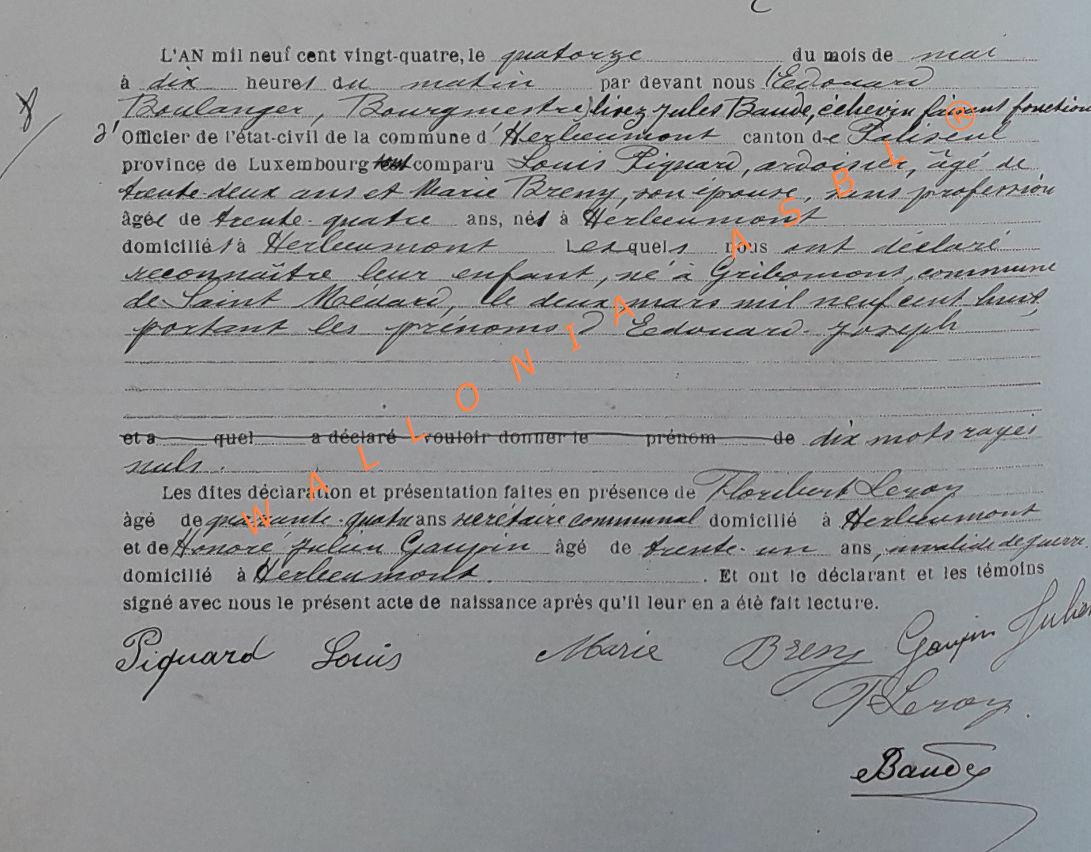 8
L'AN mil neuf cent vingt-quatre, le quatorze du mois de mai
à dix heures du matin par devant nous Edouard
Boulanger, Bourgmestre, lisez Jules Baude, échevin faisant fonction
d'Officier de l'état-civil de la commune d'Herbeumont canton de Paliseul
province de Luxembourg comparu Louis Piquard, ardoisier, âgé de
trente-deux ans et Marie Breny, son épouse, sans profession
âgée de trente-quatre ans, nés à Herbeumont
domiciliés à Herbeumont Lesquels nous ont déclaré
reconnaître leur enfant, né à Gribomont, commune
de Saint Médard, le deux mars mil neuf cent huit,
portant les prénoms d'Edouard-Joseph
et a quel a déclaré vouloir donner le prénom de dix mots rayés
nuls.
Les dites déclaration et présentation faites en présence de Floribert Leroy
âgé de quarante-quatre ans secrétaire communal domicilié à Herbeumont
et de Honoré Julien Gaupin âgé de trente-un ans, invalide de guerre
domicilié à Herbeumont. Et ont le déclarant et les témoins
signé avec nous le présent acte de naissance après qu'il leur en a été fait lecture.
Piquard Louis Marie Breny Gaupin Julien
F Leroy.
Baude
WALLONIA ASBL ®